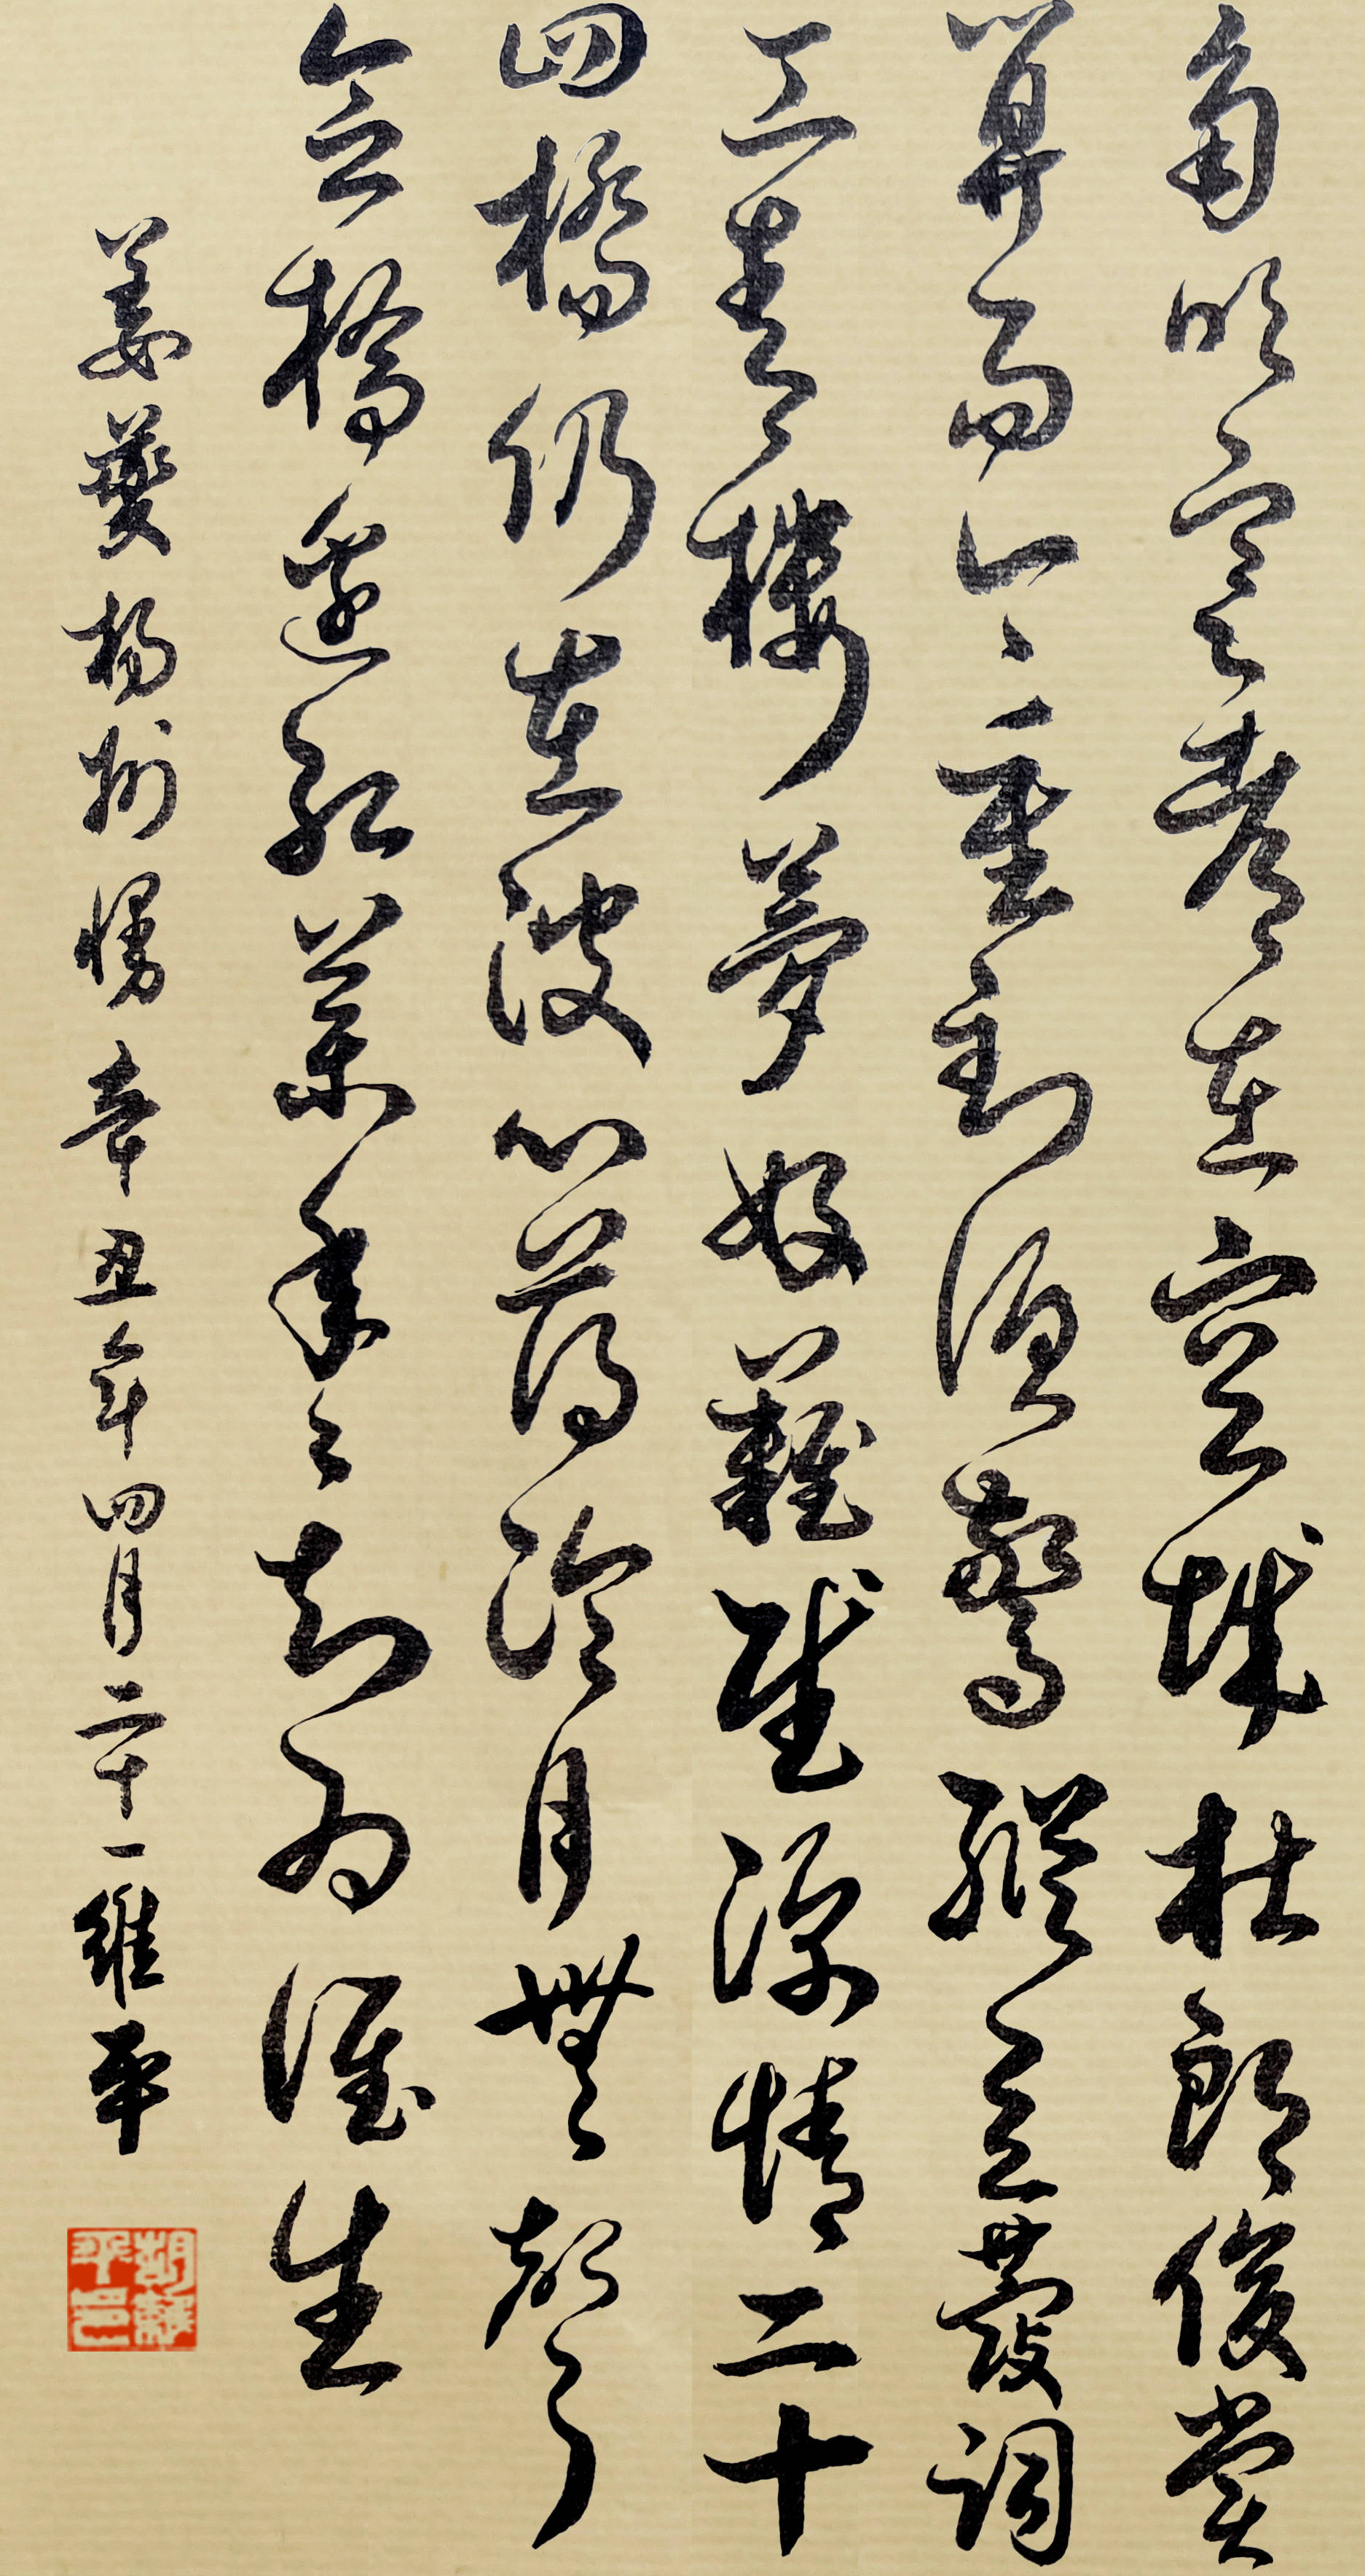 角吹寒都在空城杜郎俊賞
算而今重到須驚縱豆蔻詞
工青樓夢好難賦深情二十
四橋仍在波心蕩冷月無聲
念橋邊紅藥年々知為誰生
姜夔楊州慢辛丑年四月二十一維平
胡維平印